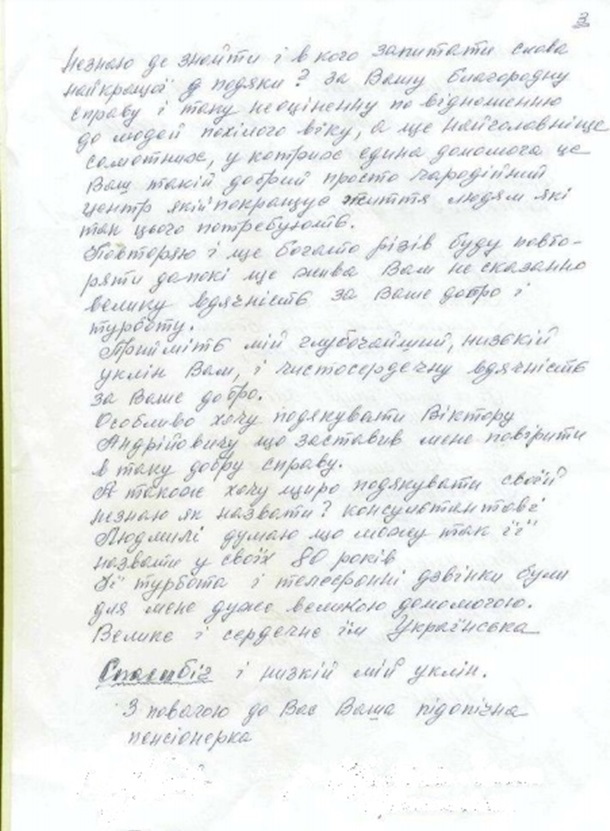 3
Незнаю де знайти і в кого запитати слова
найкращої подяки? за Вашу благородну
справу і таку неоціненну по відношенню
до людей похілого віку, а ще найголовніще
самотних, у котрих єдина допомога це
Ваш такій добрий просто чародійний
центр якій покращує життя людям які
так цього потребують.
Повторяю і ще богато різів буду повто-
ряти допокі ще жива Вам не сказанно
велику вдячність за Ваше добро і
турботу.
Прийміть мій глубочайший, низькій
уклін Вам, і чистосердечну вдячність
за Ваше добро.
Особливо хочу подякувати Віктору
Андрійовичу що заставив мене повірити
в таку добру справу.
А також хочу щиро подякувати своїй
незнаю як назвати? консультантові
Людмилі думаю що можу так її
назвати у своїх 80 років
Її турбота і телефонні дзвінки були
для мене дуже великою допомогою.
Велике і сердечне їм Українська
Спасибіг і низкій мій уклін.
З повагою до Вас Ваша підопічна
пенсіонерка